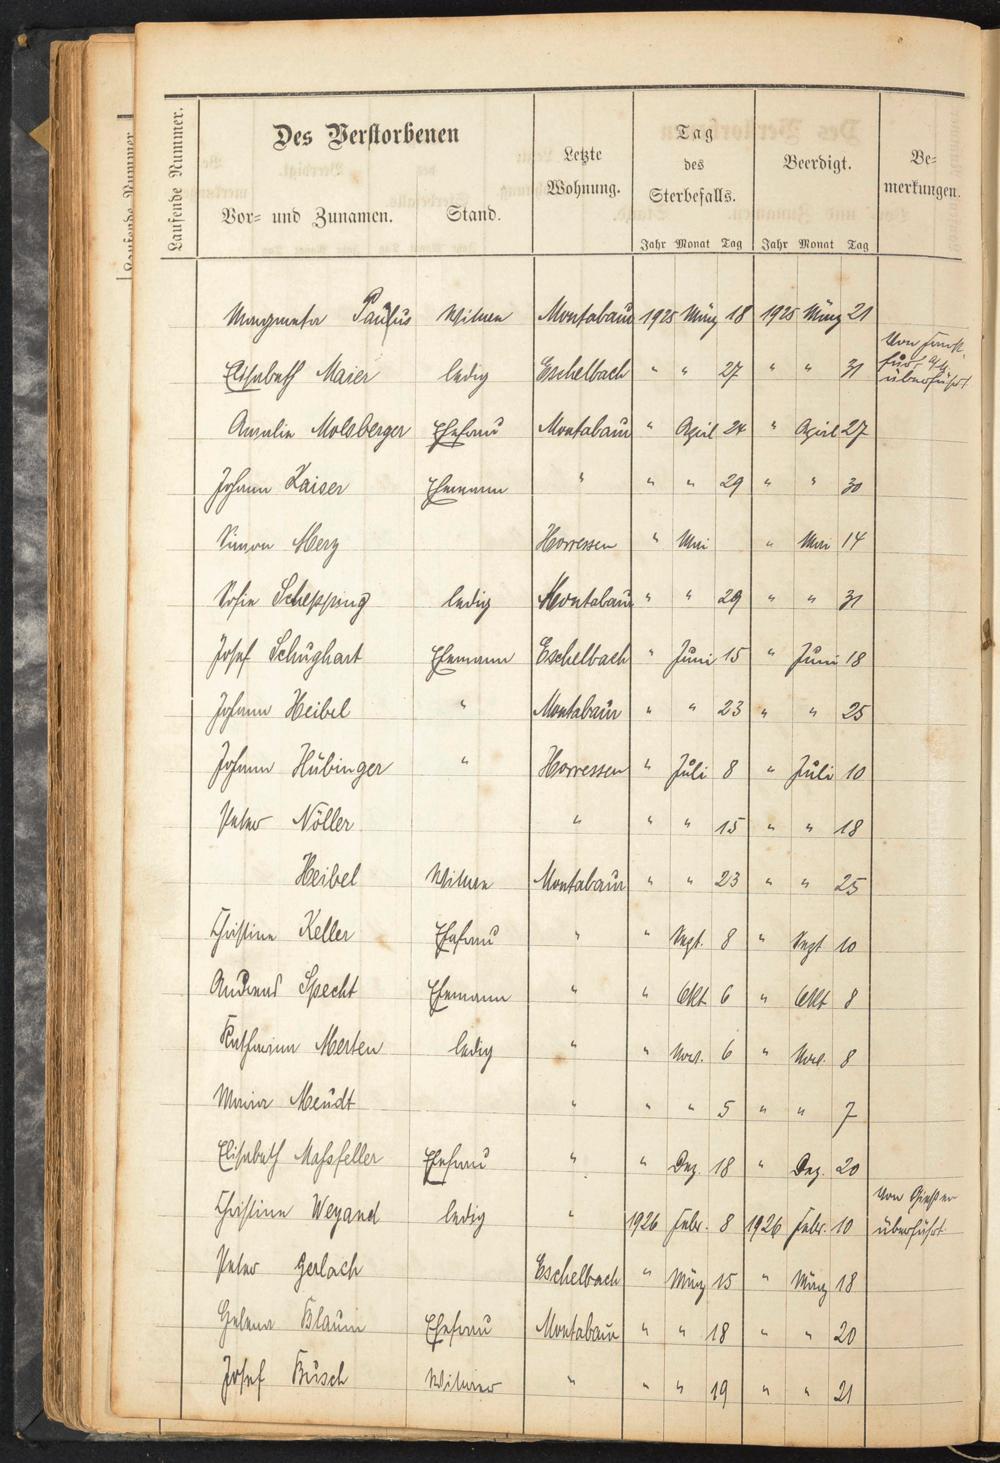 Laufende Nummer.
Laufende Nummer.
Des Verstorbenen
Vor- und Zunamen.
Stand.
Letzte
Wohnung.
Tag
des
Sterbefalls.
Beerdigt.
Be-
merkungen.
Jahr Monat Tag Jahr Monat Tag
Margareta Paulus Witwe Montabaur 1925 März 18 1925 März 21
Elisabeth Maier ledig Eschelbach " " 27 " " 31 Von Frankfurt a/M überführt
Amalie Molsberger Ehefrau Montabaur " April 24 " April 27
Johann Kaiser Ehemann " " " 29 " " 30
Simon Merz Horressen " Mai " Mai 14
Sofie Schepping ledig Montabaur " " 29 " " 31
Josef Schughart Ehemann Eschelbach " Juni 15 " Juni 18
Johann Heibel " Montabaur " " 23 " " 25
Johann Hübinger " Horressen " Juli 8 " Juli 10
Peter Nöller " " " 15 " " 18
Heibel Witwe Montabaur " " 23 " " 25
Christine Keller Ehefrau " " Sept. 8 " Sept 10
Andreas Specht Ehemann " " Okt 6 " Okt 8
Katharina Merten ledig " " Nov. 6 " Nov. 8
Maria Meudt " " " 5 " " 7
Elisabeth Massfeller Ehefrau " " Dez. 18 " Dez. 20
Christine Weyand ledig " 1926 Febr. 8 1926 Febr. 10 Von Giessen überführt
Peter Gerlach Eschelbach " März 15 " März 18
Helena Blaum Ehefrau Montabaur " " 18 " " 20
Josef Busch Witwer " " " 19 " " 21